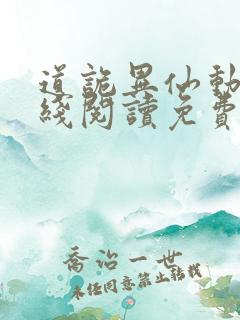 道詭異仙動
綫閱讀免費
喬治一世
未任同意禁止轉載